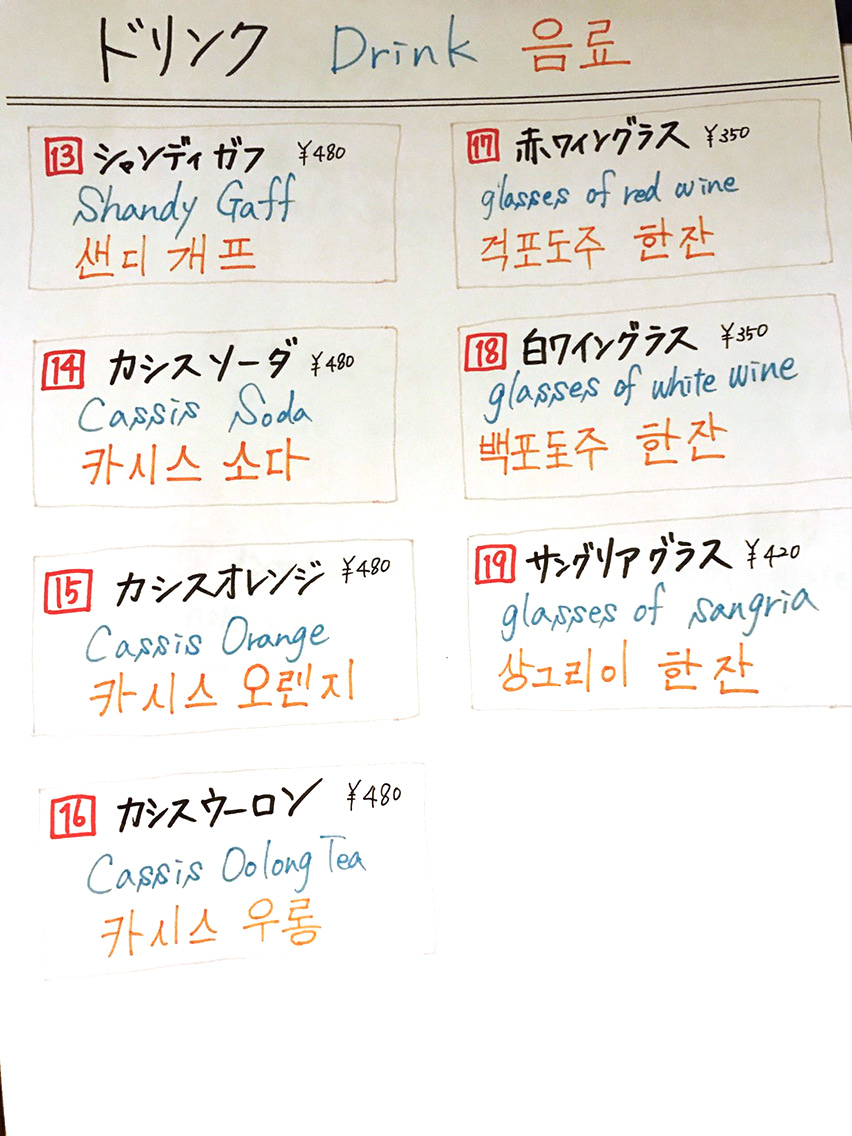 ドリンク Drink 음료
13 シャンディガフ ¥480
Shandy Gaff
샌디 개프
14 カシスソーダ ¥480
Cassis Soda
카시스 소다
15 カシスオレンジ ¥480
Cassis Orange
카시스 오렌지
16 カシスウーロン ¥480
Cassis Oolong Tea
카시스 우롱
17 赤ワイングラス ¥350
glasses of red wine
걱포도주 한잔
18 白ワイングラス ¥350
glasses of white wine
백포도주 한잔
19 サングリアグラス ¥420
glasses of sangria
상그리이 한잔